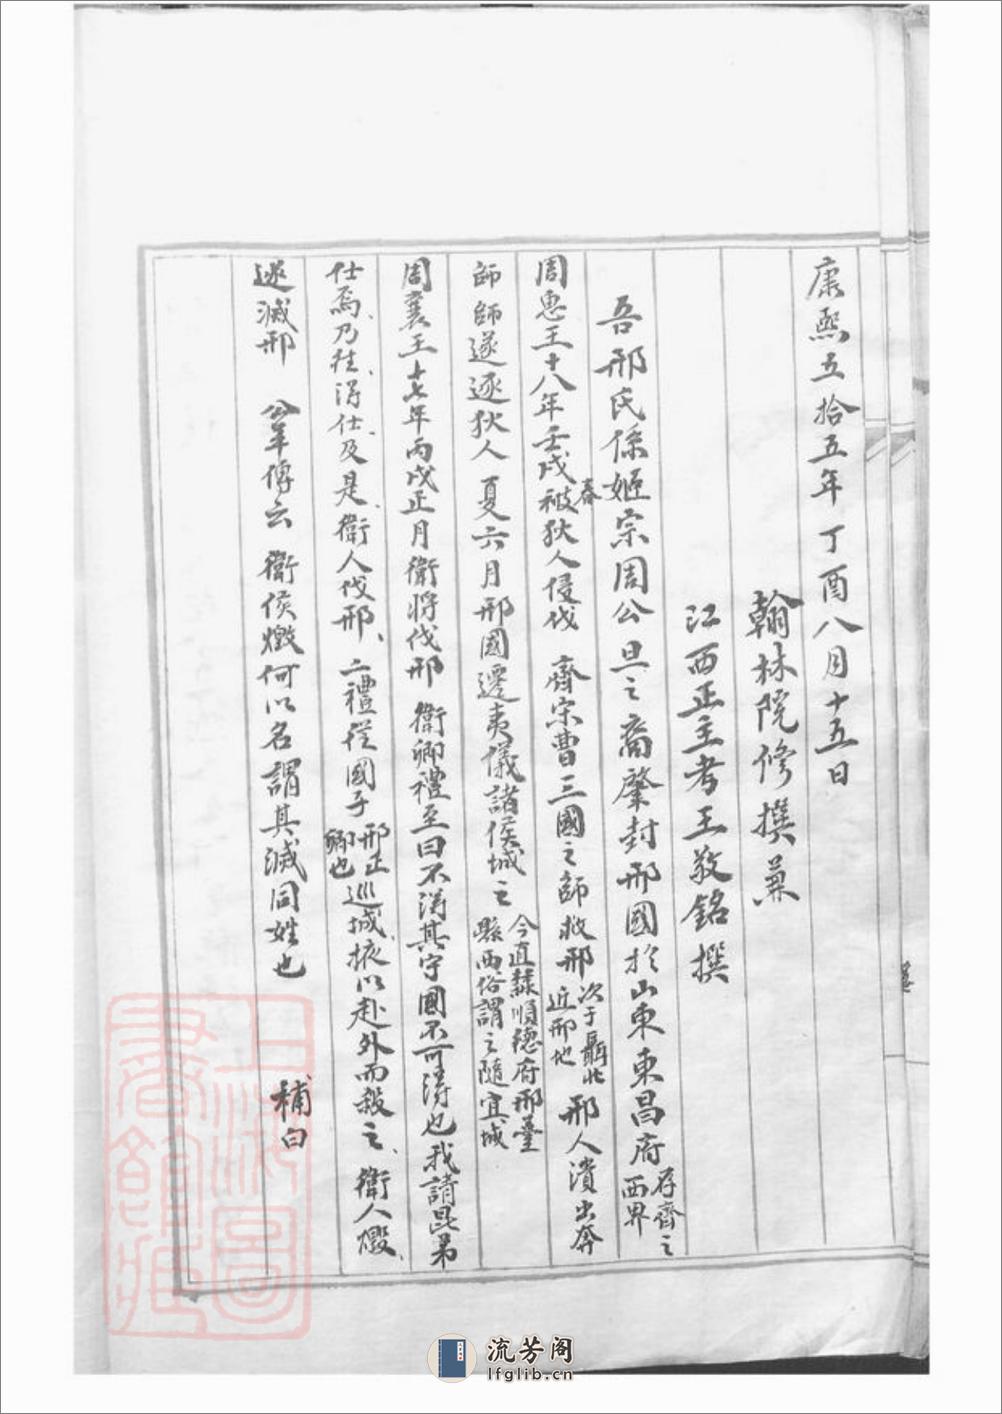 康熙五拾五年丁酉八月十五日
翰林院修撰兼
江西正主考王敬銘撰
吾邢氏係姬宗周公旦之裔肇封邢國於山東東昌府存齊之西界
周惠王十八年壬戌春被狄人侵伐 齊宋曹三國之師救邢次于聶北近邢地邢人潰出奔
師師遂逐狄人 夏六月邢國遷夷儀諸侯城之今直隸順德府邢臺縣西俗謂之隨宜城
周襄王十七年丙戌正月衛將伐邢 衛卿禮至曰不得其守國不可得也我請昆弟
仕焉、乃往、得仕、及是、衛人伐邢、二禮從國子邢正卿也巡城、掖以赴外而殺之、衛人燬、
遂滅邢 公羊傳云 衛侯燬何以名謂其滅同姓也 補白
上海圖書館藏
流芳阁
lfglib.cn